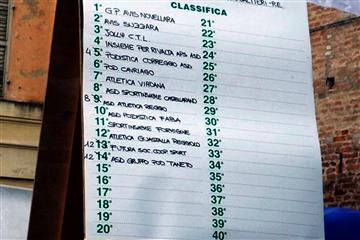 CLASSIFICA
1° G.P. AVIS NOVELLARA
2° AVIS SUZZARA
3° JOLLY C.T.L.
4° INSIEME PER RIVALTA APS ASD
4 5° PODISTICA CORREGGIO ASD
6° POD. CAVRIAGO
7° ATLETICA VIADANA
8° ASD SPORTINSIEME CASTELLARANO
8 9° ASD ATELTICA REGGIO
10° ASD PODISTICA FABLA
11° SPORTINSIEME FORMIGINE
12° ATLETICA GUASTALLA REGGIOLO
12 13° FUTURA SOC. COOP SPORT
12 14° ASD GRUPPO POD TANETO
15°
16°
17°
18°
19°
20°
21°
22°
23°
24°
25°
26°
27°
28°
29°
30°
31°
32°
33°
34°
35°
36°
37°
38°
39°
40°